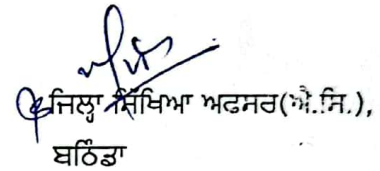 ਜਿਲ੍ਹਾ ਸਿੱਖਿਆ ਅਫਸਰ(ਐ.ਸਿ.),
ਬਠਿੰਡਾ